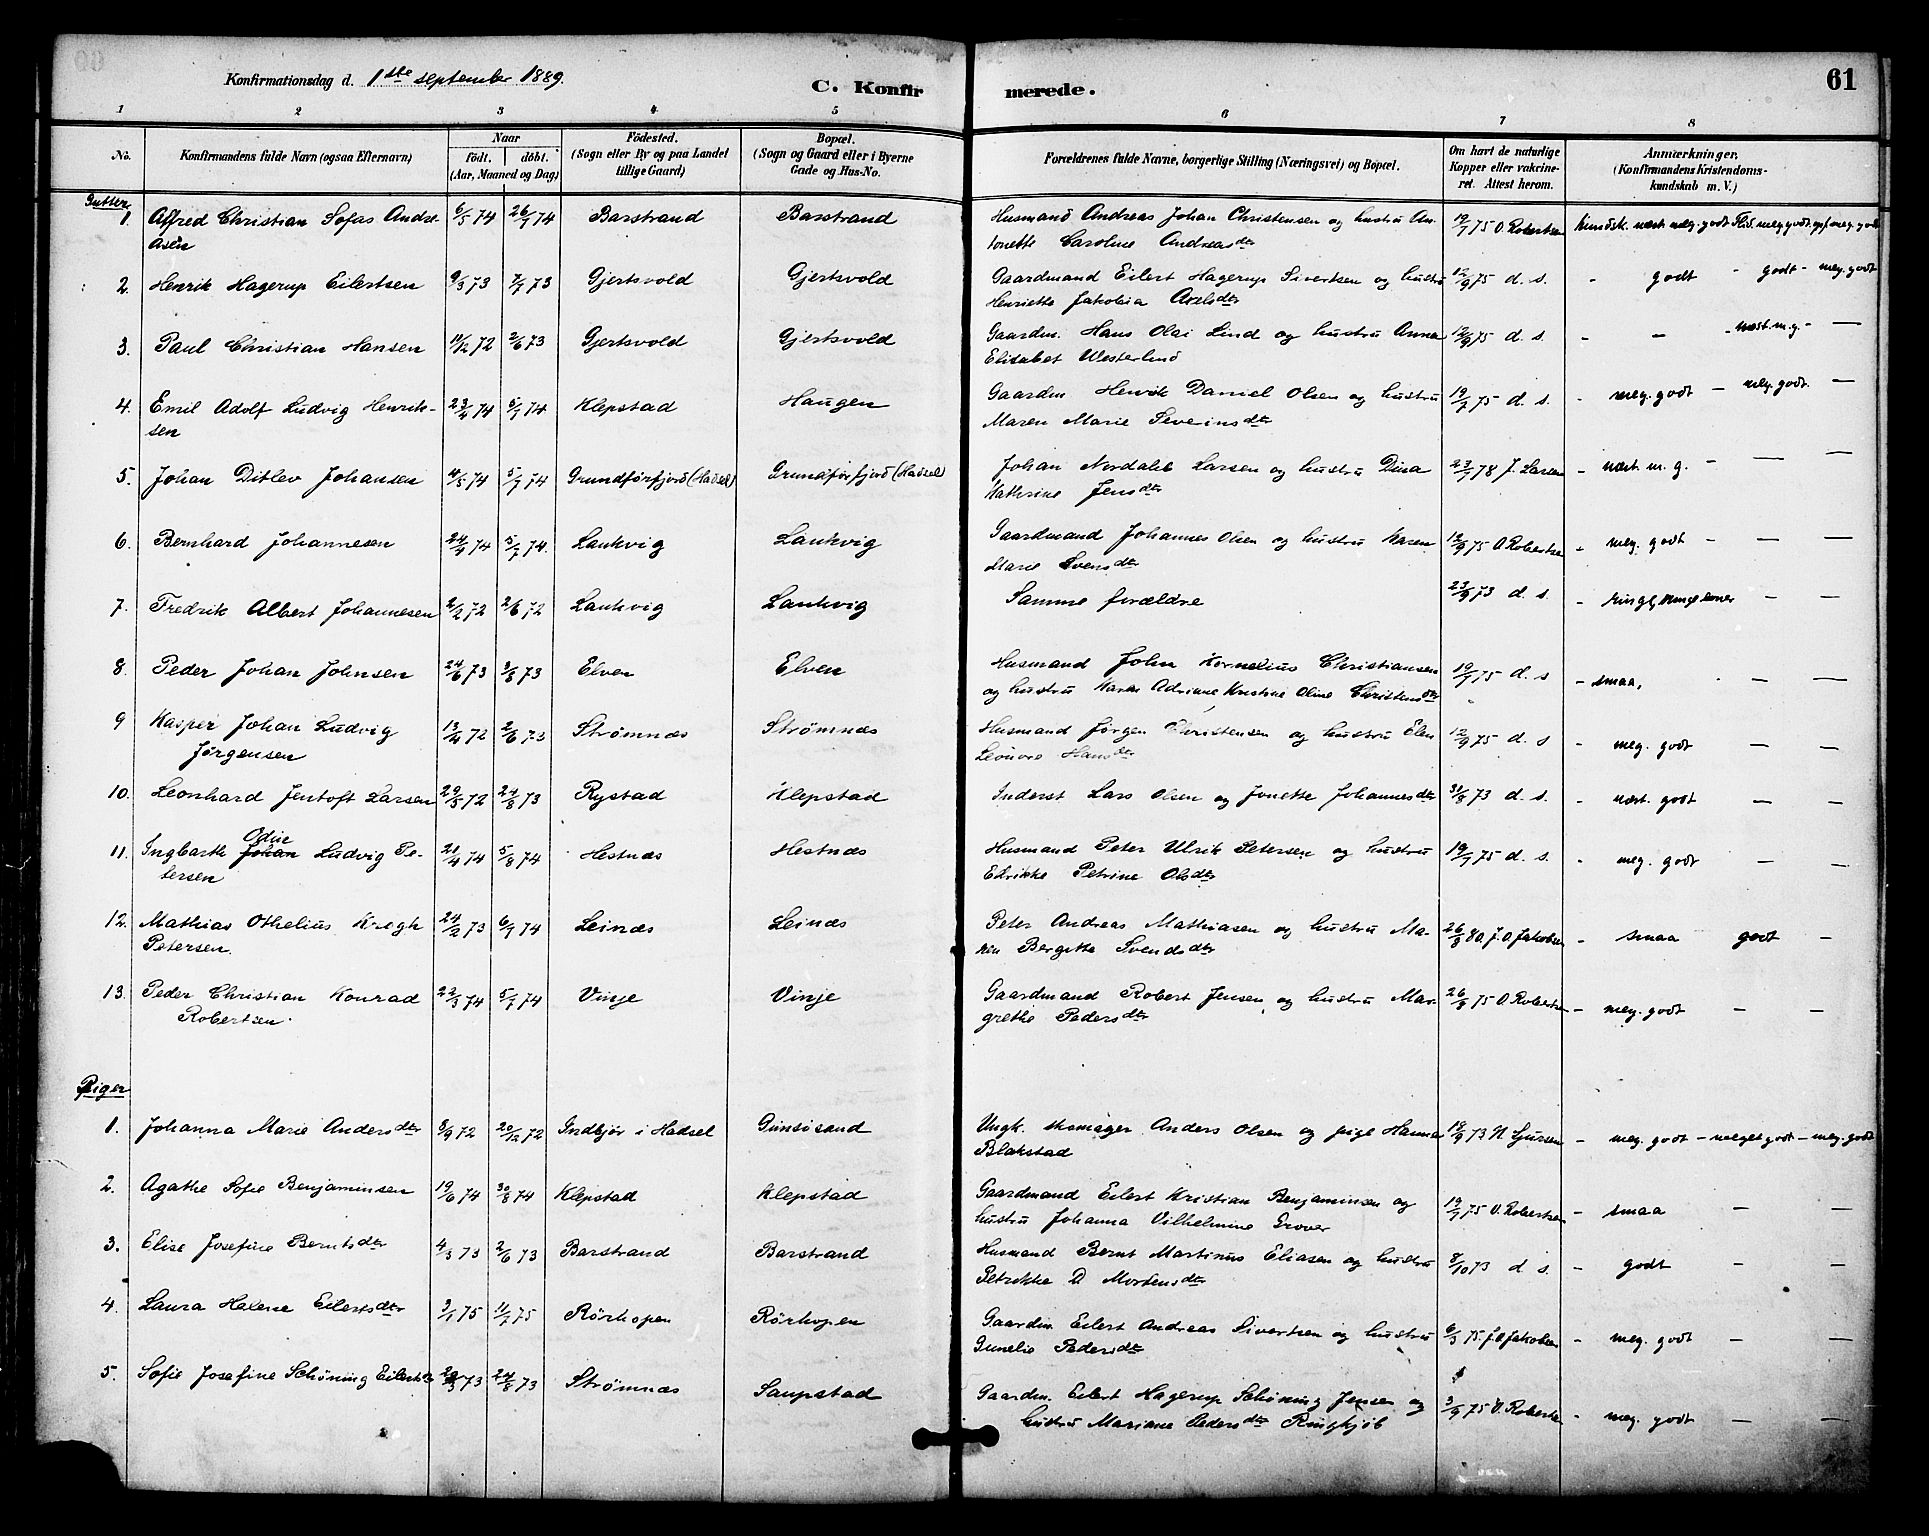 Konfirmationsdag d. 1ste september 1889.
C. Konfirmerede.
61
1 2 3 4 5 6 7 8
No.
Konfirmandens fulde Navn (ogsaa Efternavn)
Naar
født. døbt.
(Aar, Maaned og Dag)
Fødested.
(Sogn eller By og paa Landet
tillige Gaard)
Bopæl.
(Sogn og Gaard eller i Byerne
Gade og Hus-No.
Forældrenes fulde Navne, borgerlige Stilling (Næringsvei) og Bopæl.
Om havt de naturlige
Kopper eller vakcine-
ret. Attest herom.
Anmærkninger.
(Konfirmandens Kristendoms-
kundskab m. V.)
Gutter
1. Alfred Christian Sofas Andre- 6/5 74 26/7 74 Barstrand Barstrand Husmand Andreas Johan Christensen og hustru An- 19/7 75 O. Robertsen kundsk. næst meg. godt Flid. meg. godt. opf. meg. godt
asen
tonette Caroline Andreasdtr
2. Henrik Hagerup Eilertsen 9/3 73 7/7 73 Gjertsvold Gjertsvold Gaardmand Eilert Hagerup Sivertsen og hustru 12/9 75 d. s. - godt - godt - meg. godt
Henriette Jakobia Axelsdtr
3. Paul Christian Hansen 11/12 72 2/6 73 Gjertsvold Gjertsvold Gaardm. Hans Olai Lind og hustru Anna 12/9 75 d. s. - — - næst. m. g. - —
Elisabet Westerlund
4. Emil Adolf Ludvig Henrik- 23/4 74 5/7 74 Klepstad Haugen Gaardm Henrik Daniel Olsen og hustru 19/7 75 d. s. - meg. godt - meg. godt. —
sen
Maren Marie Severinsdtr
5. Johan Ditlev Johansen 4/5 74 5/7 74 Grundførfjord (Hadsel) Grundførfjord (Hadsel) Johan Nordahl Larsen og hustru Dina 23/7 78 J. Larsen - næst. m. g. - — —
Kathrine Jensdtr
6. Bernhard Johannesen 24/4 74 5/7 74. Laukvig Laukvig Gaardmand Johannes Olsen og hustru Karen 12/9 75 O. Robertsen - meg. godt - — —
Marie Svensdtr
7. Fredrik Albert Johannesen 2/2 72 2/6 72 Laukvig Laukvig Samme forældre 23/9 73 d. s. - — —
8. Peder Johan Johnsen 24/6 73 3/8 73 Elven Elven Husmand John Kornelius Christiansen 19/7 75 d. s - smaa, - — —
og hustru Karen Adriane Kristine Oline Christensdtr
9 Kasper Johan Ludvig 13/4 72 2/6 73 Strømnæs Strømnæs Husmand Jørgen Christensen og hustru Elen 12/9 75 d. s - meg. godt — —
Jørgensen
Leonore Hansdtr
10. Leonhard Jentoft Larsen 29/5 72 24/8 73 Rystad Klepstad Inderst Lars Olsen og Jonette Johannesdtr 31/8 73 d. s. - næst. godt — —
11. Ingbarth Johan Odin Ludvig Pe- 21/4 74 5/8 74 Hestnæs Hestnæs Husmand Peter Ulrik Petersen og hustru 19/7 75 d. s. - meg. godt — —
tersen
Edrikke Petrine Olsdtr
12. Mathias Othelius Krogh 24/2 73 6/7 74 Leinæs Leinæs Peter Andreas Mathiasen og hustru Ma- 26/8 80. J. O. Jakobsen - smaa godt —
Petersen.
rin Bergitte Svendsdtr
13. Peder Christian Konrad 22/3 74 5/7 74 Vinje Vinje Gaardmand Robert Jensen og hustru Mar- 26/9 75 O. Robertsen - meg. godt — —
Robertsen.
grethe Pedersdtr
Piger
1. Johanna Marie Andersdtr 8/9 72 20/12 72 Indbjør i Hadsel Gimsøsand Ungk. skomager Anders Olsen og pige Hanna 18/9 73 N Sjursen - meg. godt - meget godt - meg. godt
Blakstad
2. Agathe Sofie Benjaminsen 19/6 74 30/8 74 Klepstad Klepstad Gaardmand Eilert Kristian Benjaminsen og 19/7 75 O. Robertsen - smaa — —
hustru Johanna Vilhelmine Grover
3. Elise Josefine Berntsdtr 4/3 73 2/6 73 Barstrand Barstrand Husmand Bernt Martinus Eliasen og hustru 8/10 73 d s. - godt — —
Petrikke D Mortensdtr
4. Laura Helene Eilertsdtr 3/1 75 11/7 75 Rörhopen Rörhopen Gaardm. Eilert Andreas Sivertsen og hustru 6/3 75. J. O. Jakobsen - meg. godt — —
Gunelie Pedersdtr
5. Sofie Josefine Schöning Eilertsdtr 20/3 73 24/8 73 Strømnæs Saupstad Gaardm. Eilert Hagerup Schöning Jensen og 3/9 75 O. Robertsen - meg. godt — —
hustru Mariane Pedersdtr Ringkjöb